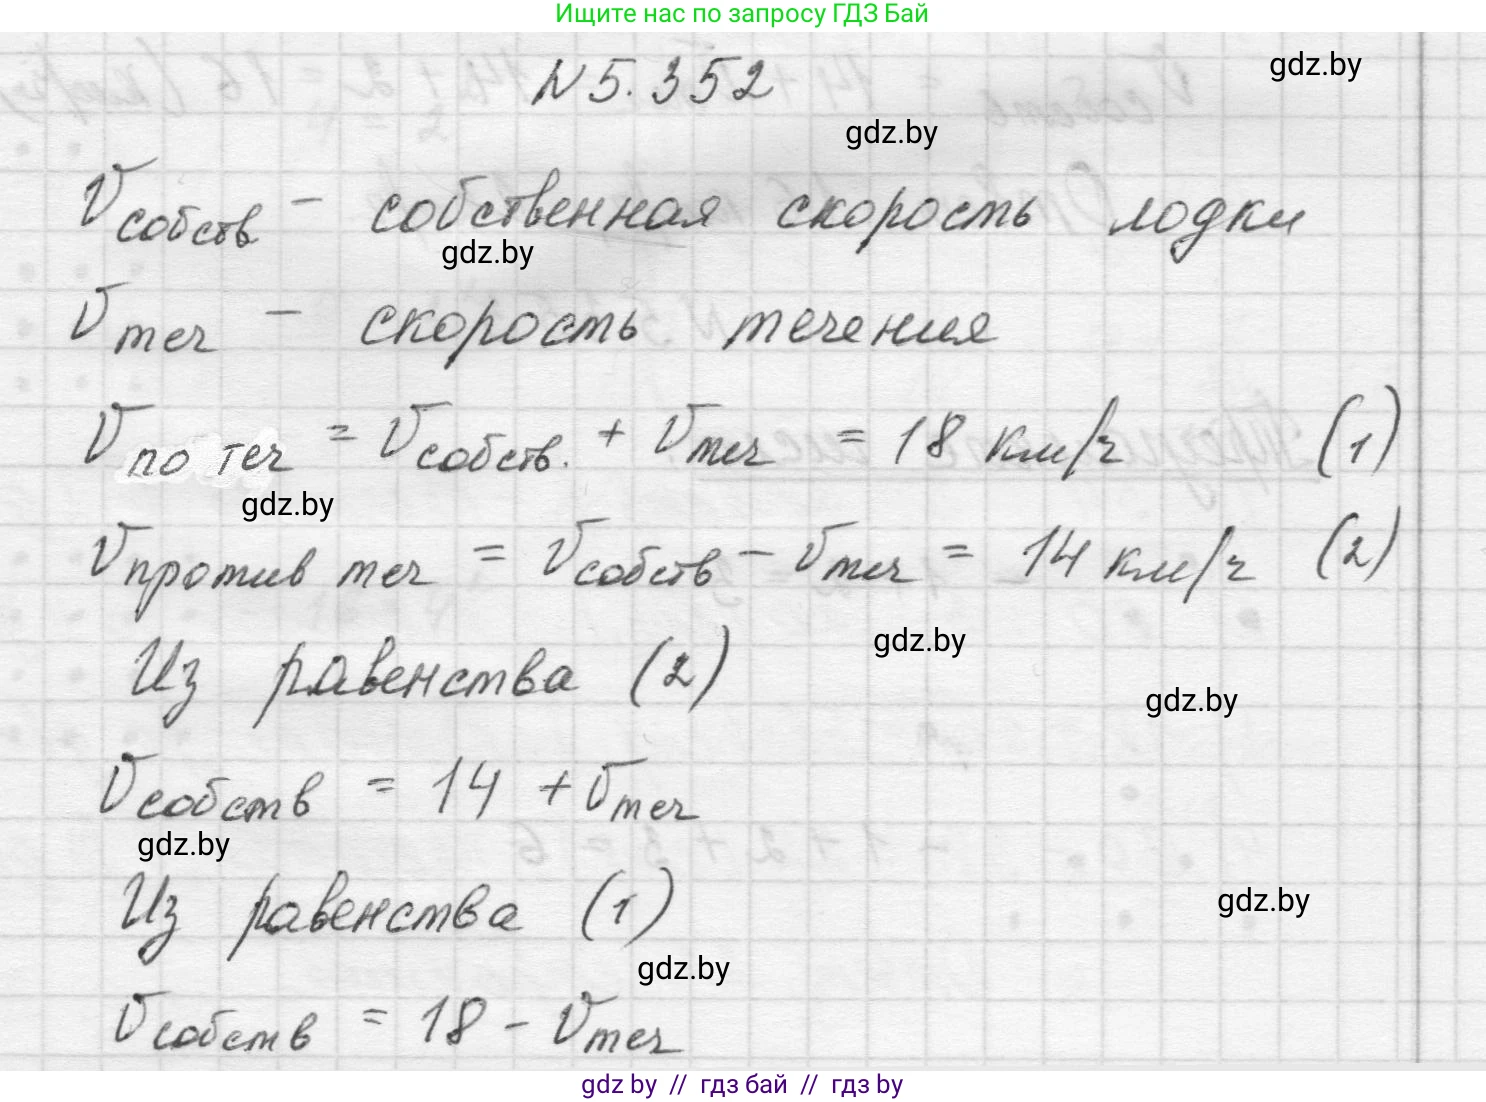 Ищите нас по запросу ГДЗ Бай
gdz.by
N 5.352
gdz.by
Vсобств – собственная скорость лодки
gdz.by
Vтеч – скорость течения
Vпо теч = Vсобств. + Vтеч = 18 км/ч (1)
gdz.by
Vпротив теч = Vсобств – Vтеч = 14 км/ч (2)
gdz.by
Из равенства (2)
gdz.by
Vсобств = 14 + Vтеч
gdz.by
Из равенства (1)
gdz.by
gdz.by
Vсобств = 18 – Vтеч
gdz by // гдз бай // гдз by